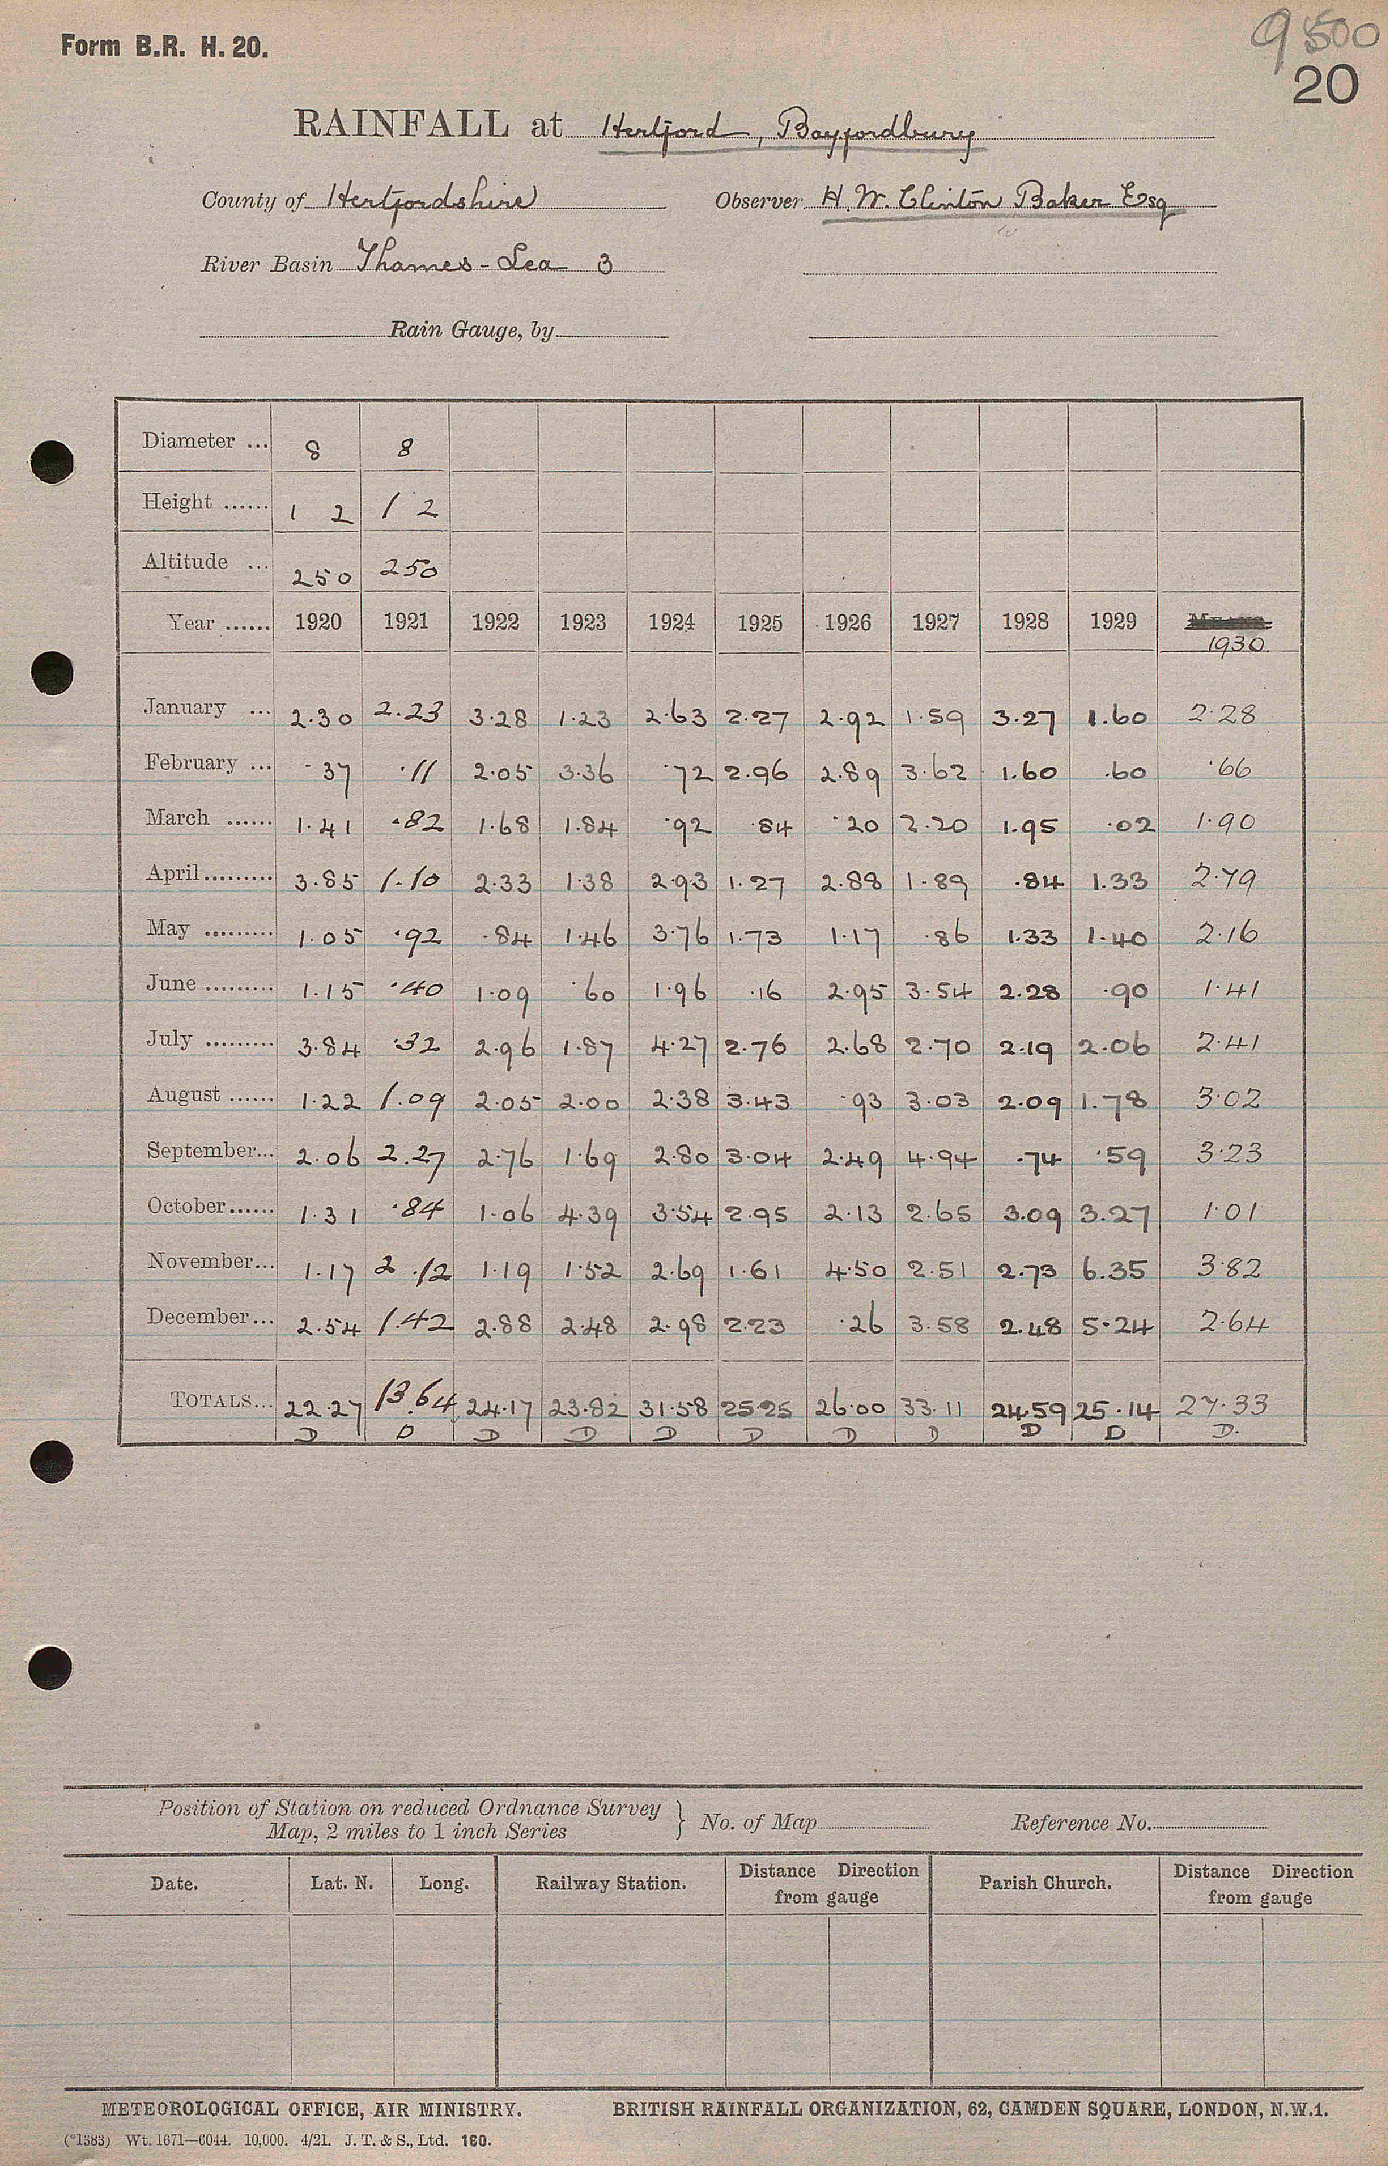 Form B.R. H. 20.
9500
20
RAINFALL at Hertford, Bayfordbury
County of Hertfordshire Observer H. W. Clinton Baker Esq
River Basin Thames - Lea 3
Rain Gauge, by
Diameter ... 8 8
Height ...... 1 2 1 2
Altitude ... 250 250
Year ...... 1920 1921 1922 1923 1924 1925 1926 1927 1928 1929 1930
January ... 2.30 2.23 3.28 1.23 2.63 2.27 2.92 1.59 3.27 1.60 2.28
February ... .37 .11 2.05 3.36 .72 2.96 2.89 3.62 1.60 .60 .66
March ...... 1.41 .82 1.68 1.84 .92 .84 .20 2.20 1.95 .02 1.90
April ......... 3.85 1.10 2.33 1.38 2.93 1.27 2.88 1.89 .84 1.33 2.79
May ......... 1.05 .92 .84 1.46 3.76 1.73 1.17 .86 1.33 1.40 2.16
June ......... 1.15 .40 1.09 .60 1.96 .16 2.95 3.54 2.28 .90 1.41
July ......... 3.84 .32 2.96 1.87 4.27 2.76 2.68 2.70 2.19 2.06 2.41
August ...... 1.22 1.09 2.05 2.00 2.38 3.43 .93 3.03 2.09 1.78 3.02
September... 2.06 2.27 2.76 1.69 2.80 3.04 2.49 4.94 .74 .59 3.23
October...... 1.31 .84 1.06 4.39 3.54 2.95 2.13 2.65 3.09 3.27 1.01
November... 1.17 2.12 1.19 1.52 2.69 1.61 4.50 2.51 2.73 6.35 3.82
December... 2.54 1.42 2.88 2.48 2.98 2.23 .26 3.58 2.48 5.24 2.64
TOTALS... 22.27 13.64 24.17 23.82 31.58 25.25 26.00 33.11 24.59 25.14 27.33
D D D D D D D D D D D.
Position of Station on reduced Ordnance Survey
Map, 2 miles to 1 inch Series } No. of Map Reference No.
Date. Lat. N. Long. Railway Station. Distance Direction from gauge Parish Church. Distance Direction from gauge
METEOROLOGICAL OFFICE, AIR MINISTRY. BRITISH RAINFALL ORGANIZATION, 62, CAMDEN SQUARE, LONDON, N.W.1.
(*1383) Wt. 1671—6044. 10,000. 4/21. J. T. & S., Ltd. 160.